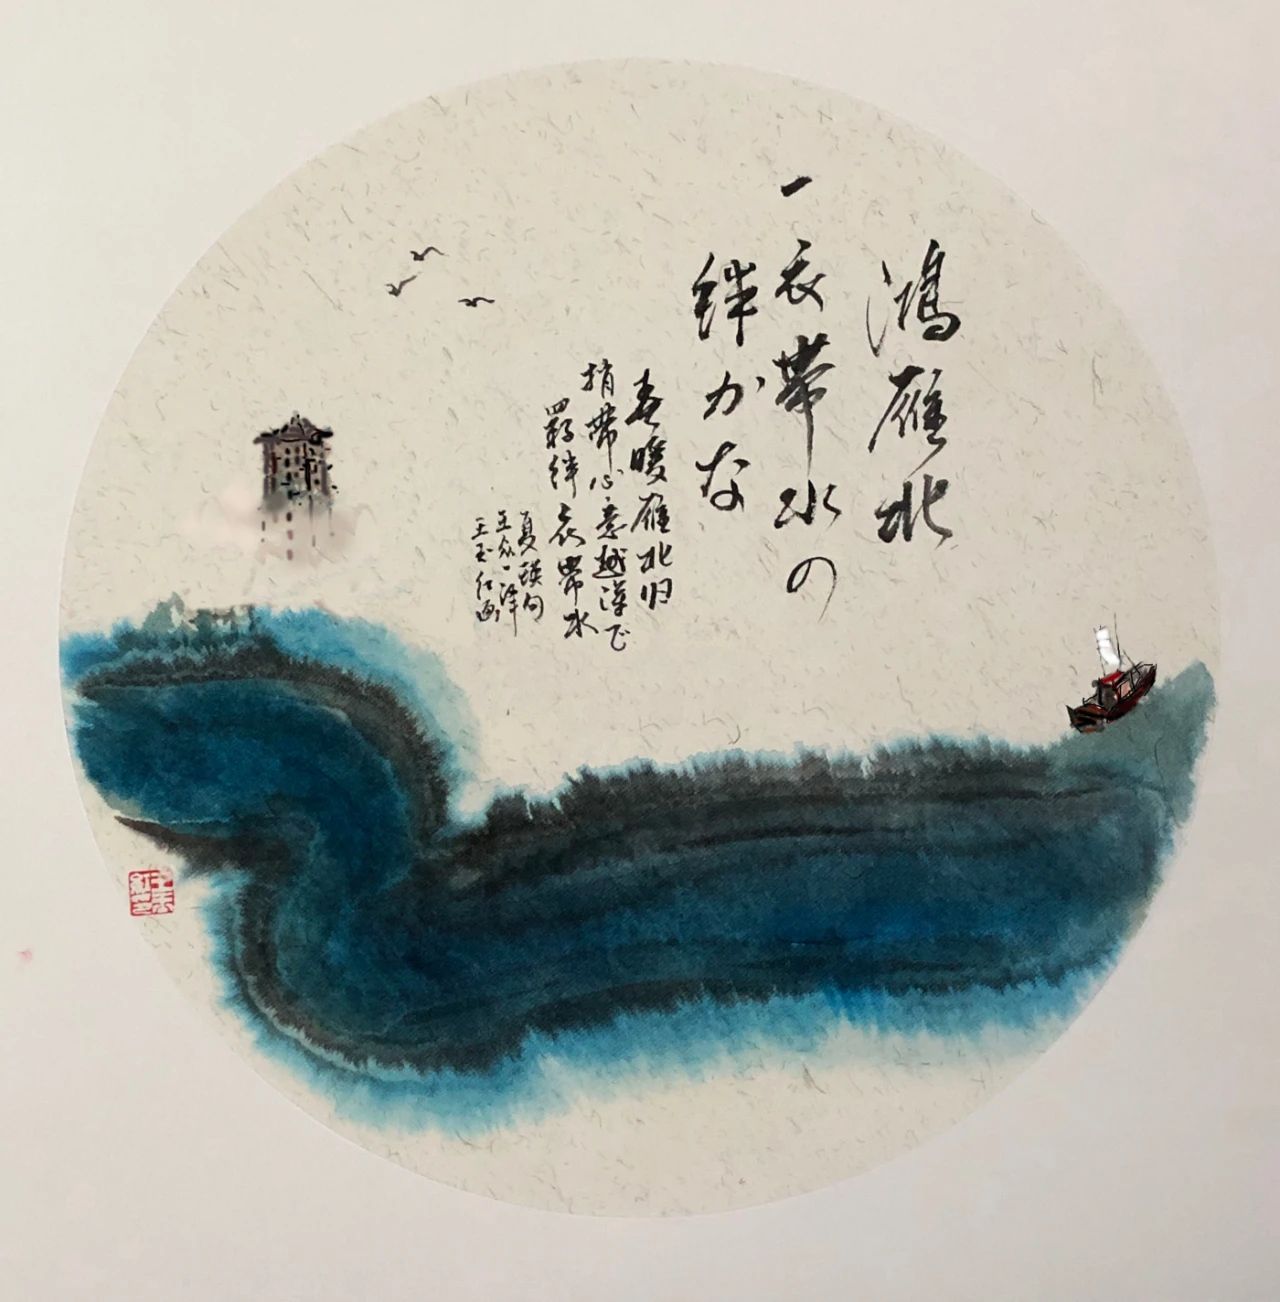 鴻雁北
一衣帯水の
絆かな
春暖雁北归
捎带心意越洋飞
羁绊衣带水
夏瑛句
王众一译
王玉红画